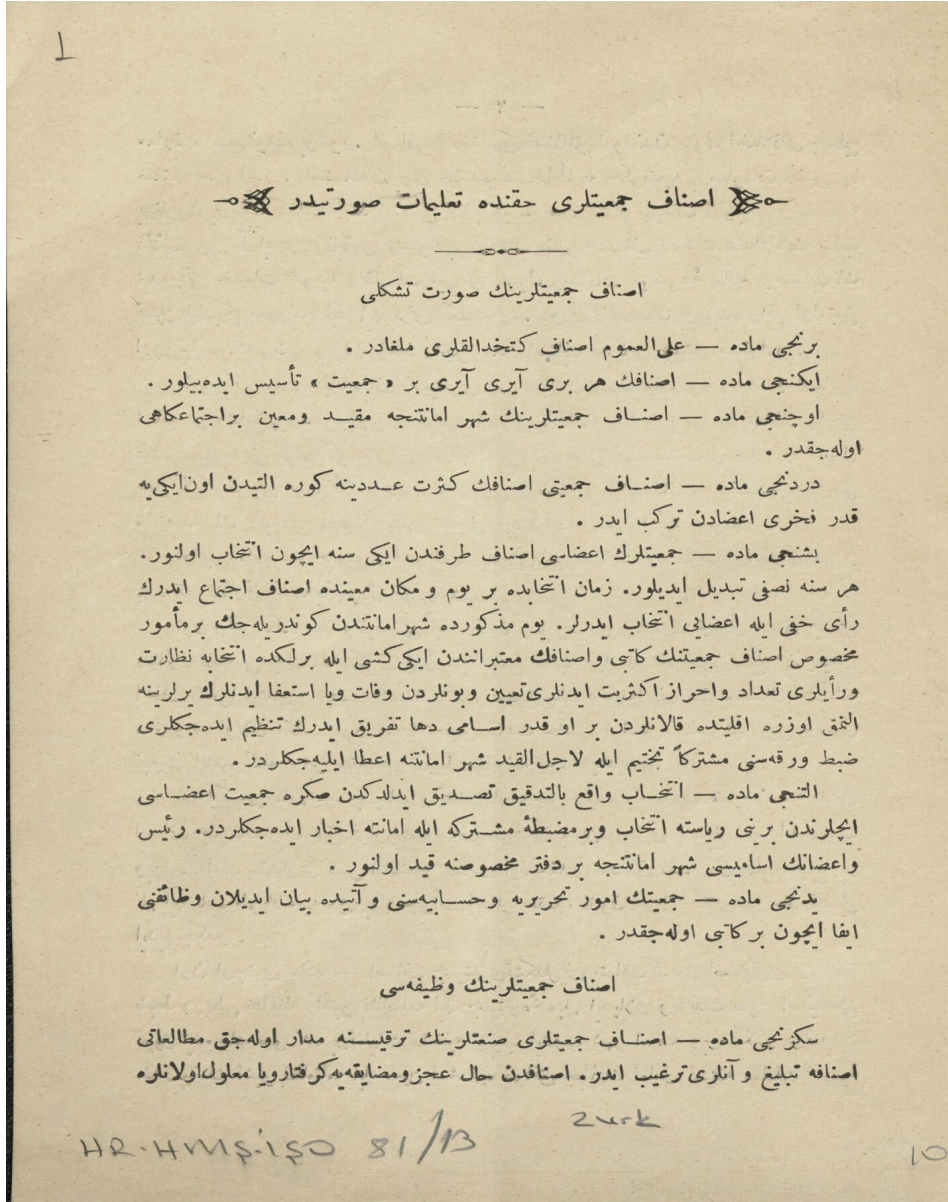 1
اصناف جمعیتلری حقنده تعلیمات صورتیدر
اصناف جمعیتلرینك صورت تشكلی
برنجی ماده — علی‌العموم اصناف كتخدالقلری ملغادر .
ایكنجی ماده — اصنافك هر بری آیری آیری بر « جمعیت » تأسیس ایده‌بیلور .
اوچنجی ماده — اصنـاف جمعیتلرینك شهر امانتنجه مقیـد ومعین براجتماعكاهی
اوله‌جقدر .
دردنجی ماده — اصنـاف جمعیتی اصنافك كثرت عـددینه كوره التیدن اون‌ایكی‌یه
قدر فخری اعضادن تركب ایدر .
بشنجی ماده — جمعیتلرك اعضاسی اصناف طرفندن ایكی سنه ایچون انتخاب اولنور.
هر سنه نصفی تبدیل ایدیلور. زمان انتخابده بر یوم و مكان معینده اصناف اجتماع ایدرك
رأی خفی ایله اعضایی انتخاب ایدرلر. یوم مذكورده شهرامانتندن كوندریله‌جك برمأمور
مخصوص اصناف جمعیتنك كاتبی واصنافك معتبرانندن ایكی كشی ایله برلكده انتخابه نظارت
ورأیلری تعداد واحراز اكثریت ایدنلری تعیین وبونلردن وفات ویا استعفا ایدنلرك یرلرینه
التمق اوزره اقلیتده قالانلردن بر او قدر اسـامی دها تفریق ایدرك تنظیم ایده‌جكلری
ضبط ورقه‌سنی مشتركاً تختیم ایله لاجل‌القید شهر امانتنه اعطا ایلیه‌جكلردر .
التنجی ماده — انتخـاب واقع بالتدقیق تصـدیق ایدلدكدن صكره جمعیت اعضـاسی
ایچلرندن برینی ریاسته انتخاب وبرمضبطۀ مشـتركه ایله امانته اخبار ایده‌جكلردر. رئیس
واعضانك اسامیسی شهر امانتنجه بر دفتر مخصوصنه قید اولنور .
یدنجی ماده — جمعیتك امور تحریریه وحسـابیه‌سنی و آتیده بیان ایدیلان وظائفنی
ایفا ایچون بر كاتبی اوله‌جقدر .
اصناف جمعیتلرینك وظیفه‌سی
سكزنجی ماده — اصنـاف جمعیتلری صنعتلرینك ترقیسـنه مدار اوله‌جق مطالعاتی
اصنافه تبلیغ و آنلری ترغیب ایدر. اصنافدن حال عجز ومضایقه‌یه كرفتار ویا معلول اولانلره
2urk
HR.HMŞ.İŞO 81/13
10